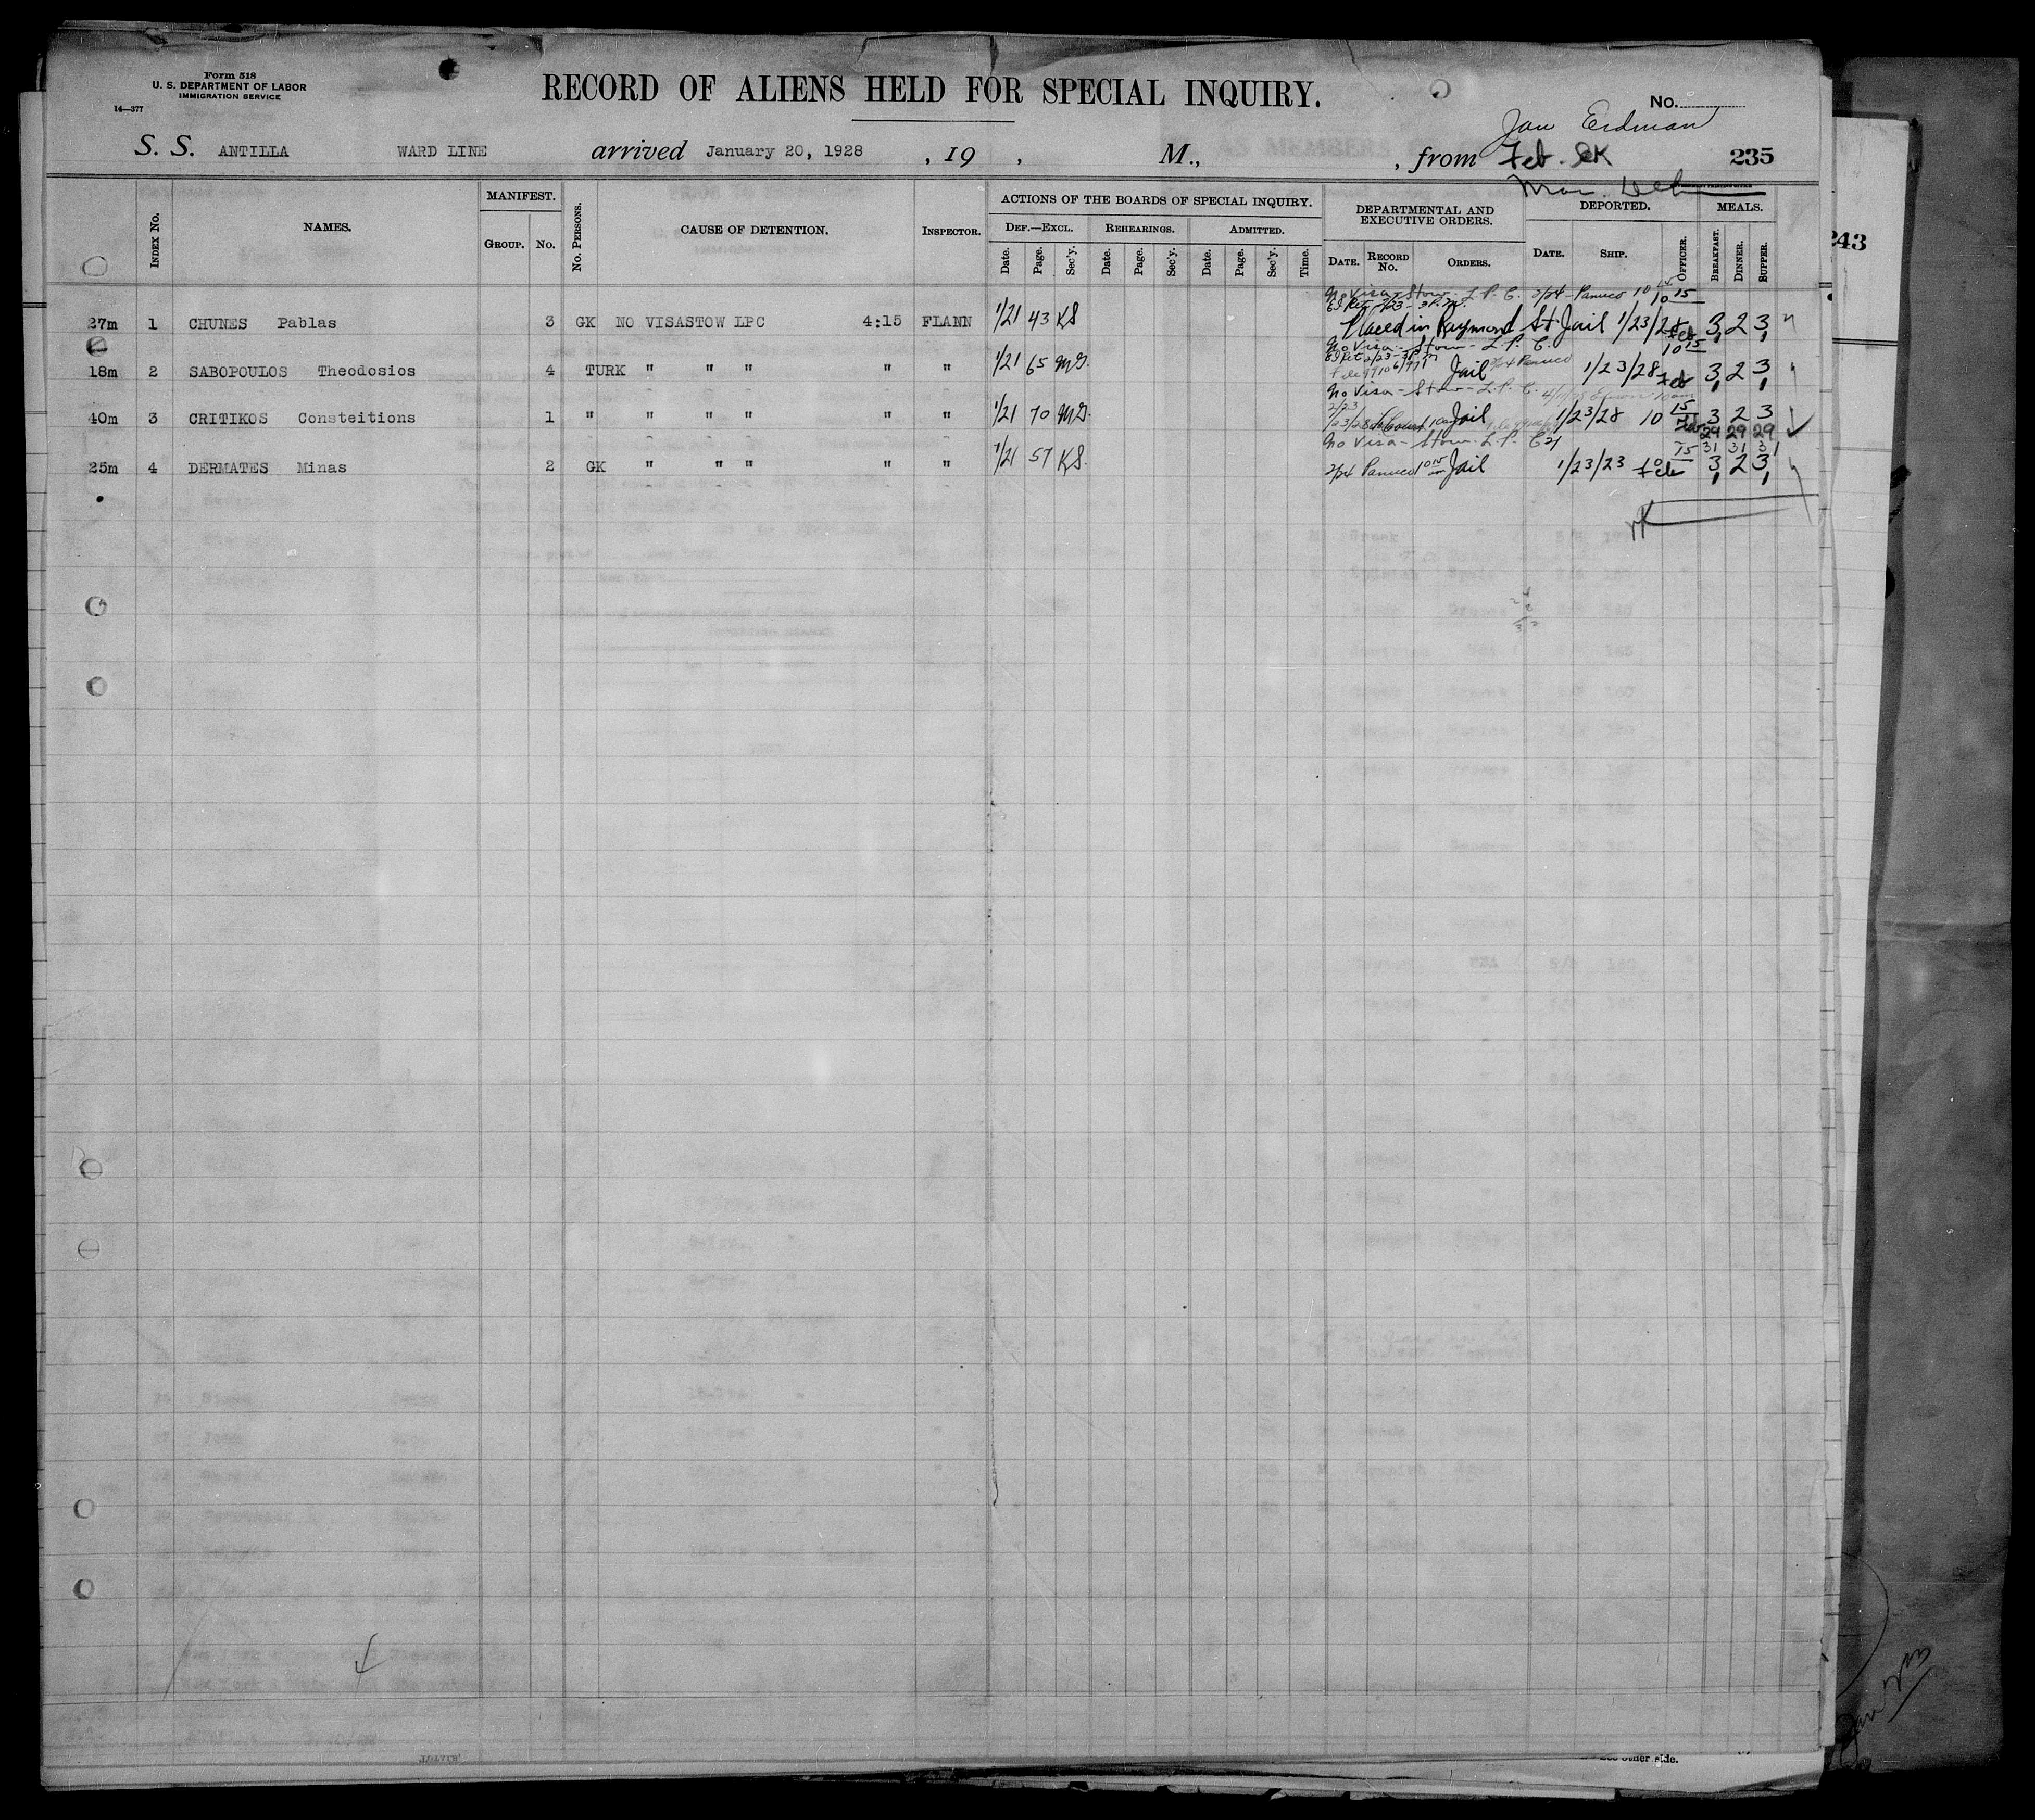 Form 518
U. S. DEPARTMENT OF LABOR
IMMIGRATION SERVICE
14—377
RECORD OF ALIENS HELD FOR SPECIAL INQUIRY.
No.
Jan Erdman
S. S. ANTILLA WARD LINE arrived January 20, 1928 , 19 , M., , from Feb. 235
Mar.
INDEX No.
NAMES.
MANIFEST.
GROUP. No.
No. PERSONS.
CAUSE OF DETENTION.
INSPECTOR.
ACTIONS OF THE BOARDS OF SPECIAL INQUIRY.
DEF.—EXCL. REHEARINGS. ADMITTED.
Date. Page. Sec'y. Date. Page. Sec'y. Date. Page. Sec'y. Time.
DEPARTMENTAL AND
EXECUTIVE ORDERS.
DATE. RECORD No. ORDERS.
DEPORTED.
DATE. SHIP. OFFICER.
MEALS.
BREAKFAST. DINNER. SUPPER.
243
No Visa - Stow - L. P. C. 2/24 - Panuco 10 15
27m 1 CHUNES Pablas 3 GK NO VISASTOW LPC 4:15 FLANN 1/21 43 KS Placed in Raymond St. Jail 1/23/28 Feb 3 2 3
No Visa - Stow - L. P. C. 10 15
18m 2 SABOPOULOS Theodosios 4 TURK " " " " " 1/21 65 MG. Jail 2/4 Panuco 1/23/28 Feb 3 2 3
No Visa - Stow - L. P. C.
40m 3 CRITIKOS Consteitions 1 " " " " " " 1/21 70 MG. Jail 1/23/28 10 15 3 2 3
29 29 29
No Visa - Stow. L. P. C. 31 31 31
25m 4 DERMATES Minas 2 GK " " " " " 1/21 57 KS. 2/24 Panuco 10 15 am Jail 1/23/23 Feb 3 2 3
See other side.
Jan